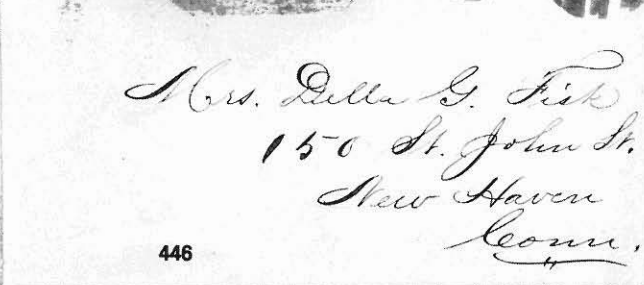 Mrs. Della G. Fisk
150 St. John St.
New Haven
Conn.
446